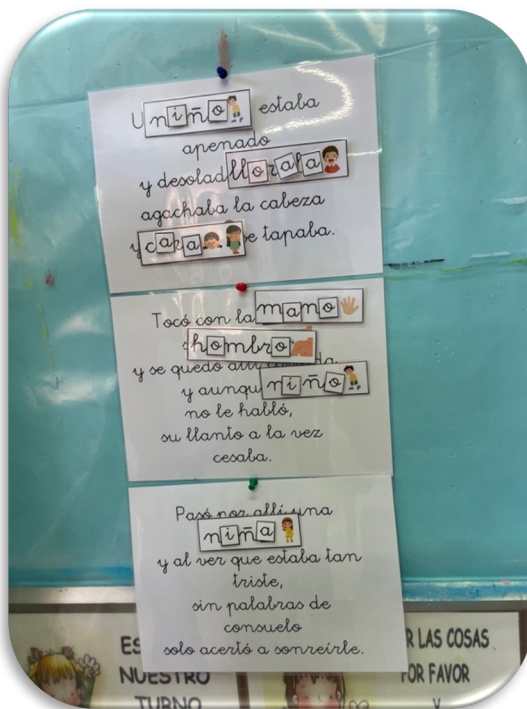 Un niño estaba
apenado
y desolad lloraba
agachaba la cabeza
y cara se tapaba.
Tocó con la mano
hombro
y se quedó allí
y aunqu niño
no le habló,
su llanto a la vez
cesaba.
Pasó por allí una
niña
y al ver que estaba tan
triste,
sin palabras de
consuelo
solo acertó a sonreírle.
ES
NUESTRO
TURNO
R LAS COSAS
POR FAVOR
Y